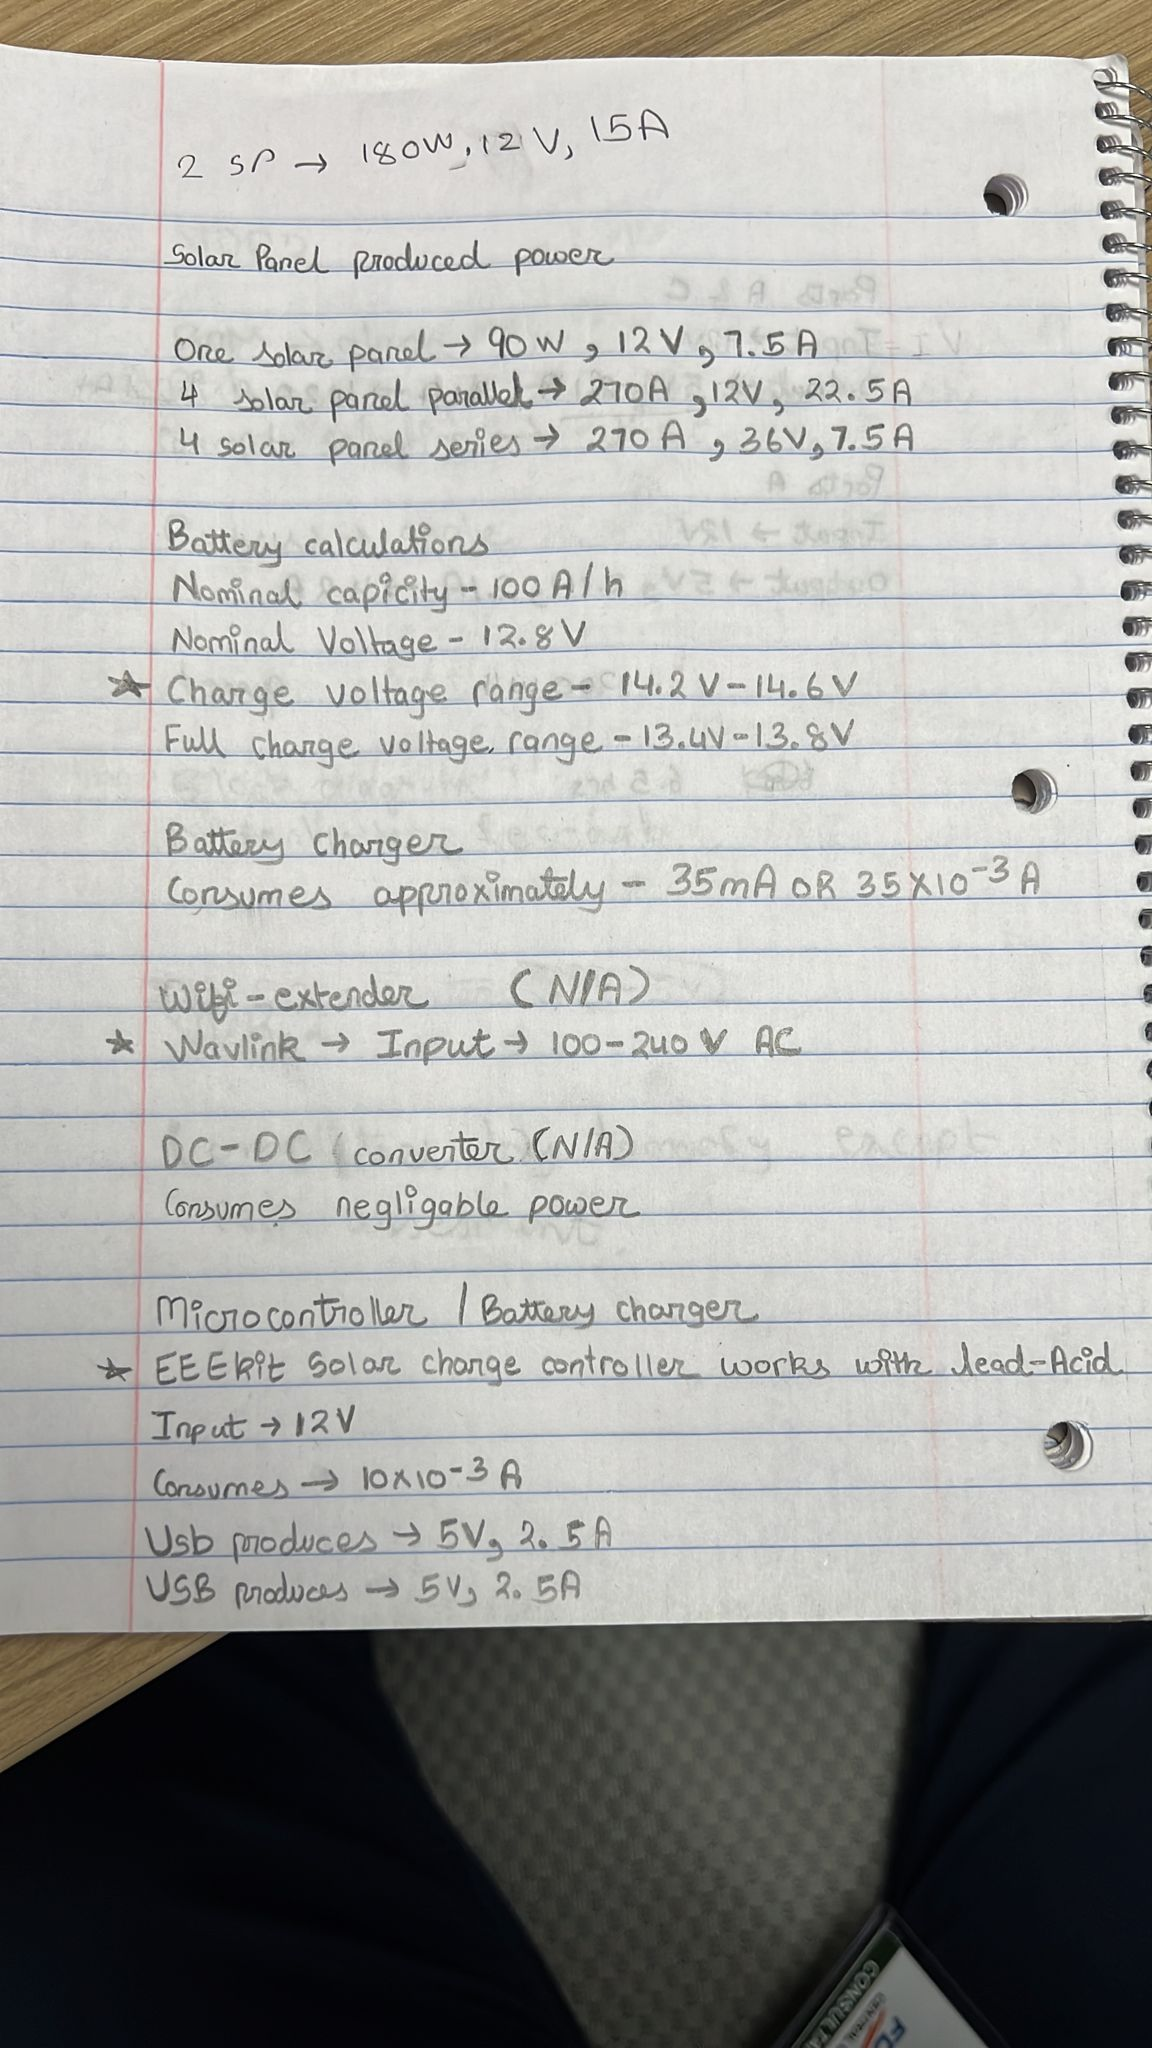 2 SP → 180W, 12V, 15A
Solar Panel produced power
One solar panel → 90W, 12V, 7.5A
4 solar panel parallel → 270A, 12V, 22.5A
4 solar panel series → 270A, 36V, 7.5A
Battery calculations
Nominal capicity - 100 A/h
Nominal Voltage - 12.8V
☆ Charge voltage range - 14.2V-14.6V
Full charge voltage range - 13.4V-13.8V
Battery charger
Consumes approximately - 35mA OR 35×10⁻³ A
Wifi-extender (N/A)
☆ Wavlink → Input → 100-240 V AC
DC-DC converter (N/A)
Consumes negligable power
Microcontroller / Battery charger
☆ EEEkit Solar charge controller works with lead-Acid
Input → 12V
Consumes → 10×10⁻³ A
Usb produces → 5V, 2.5A
USB produces → 5V, 2.5A